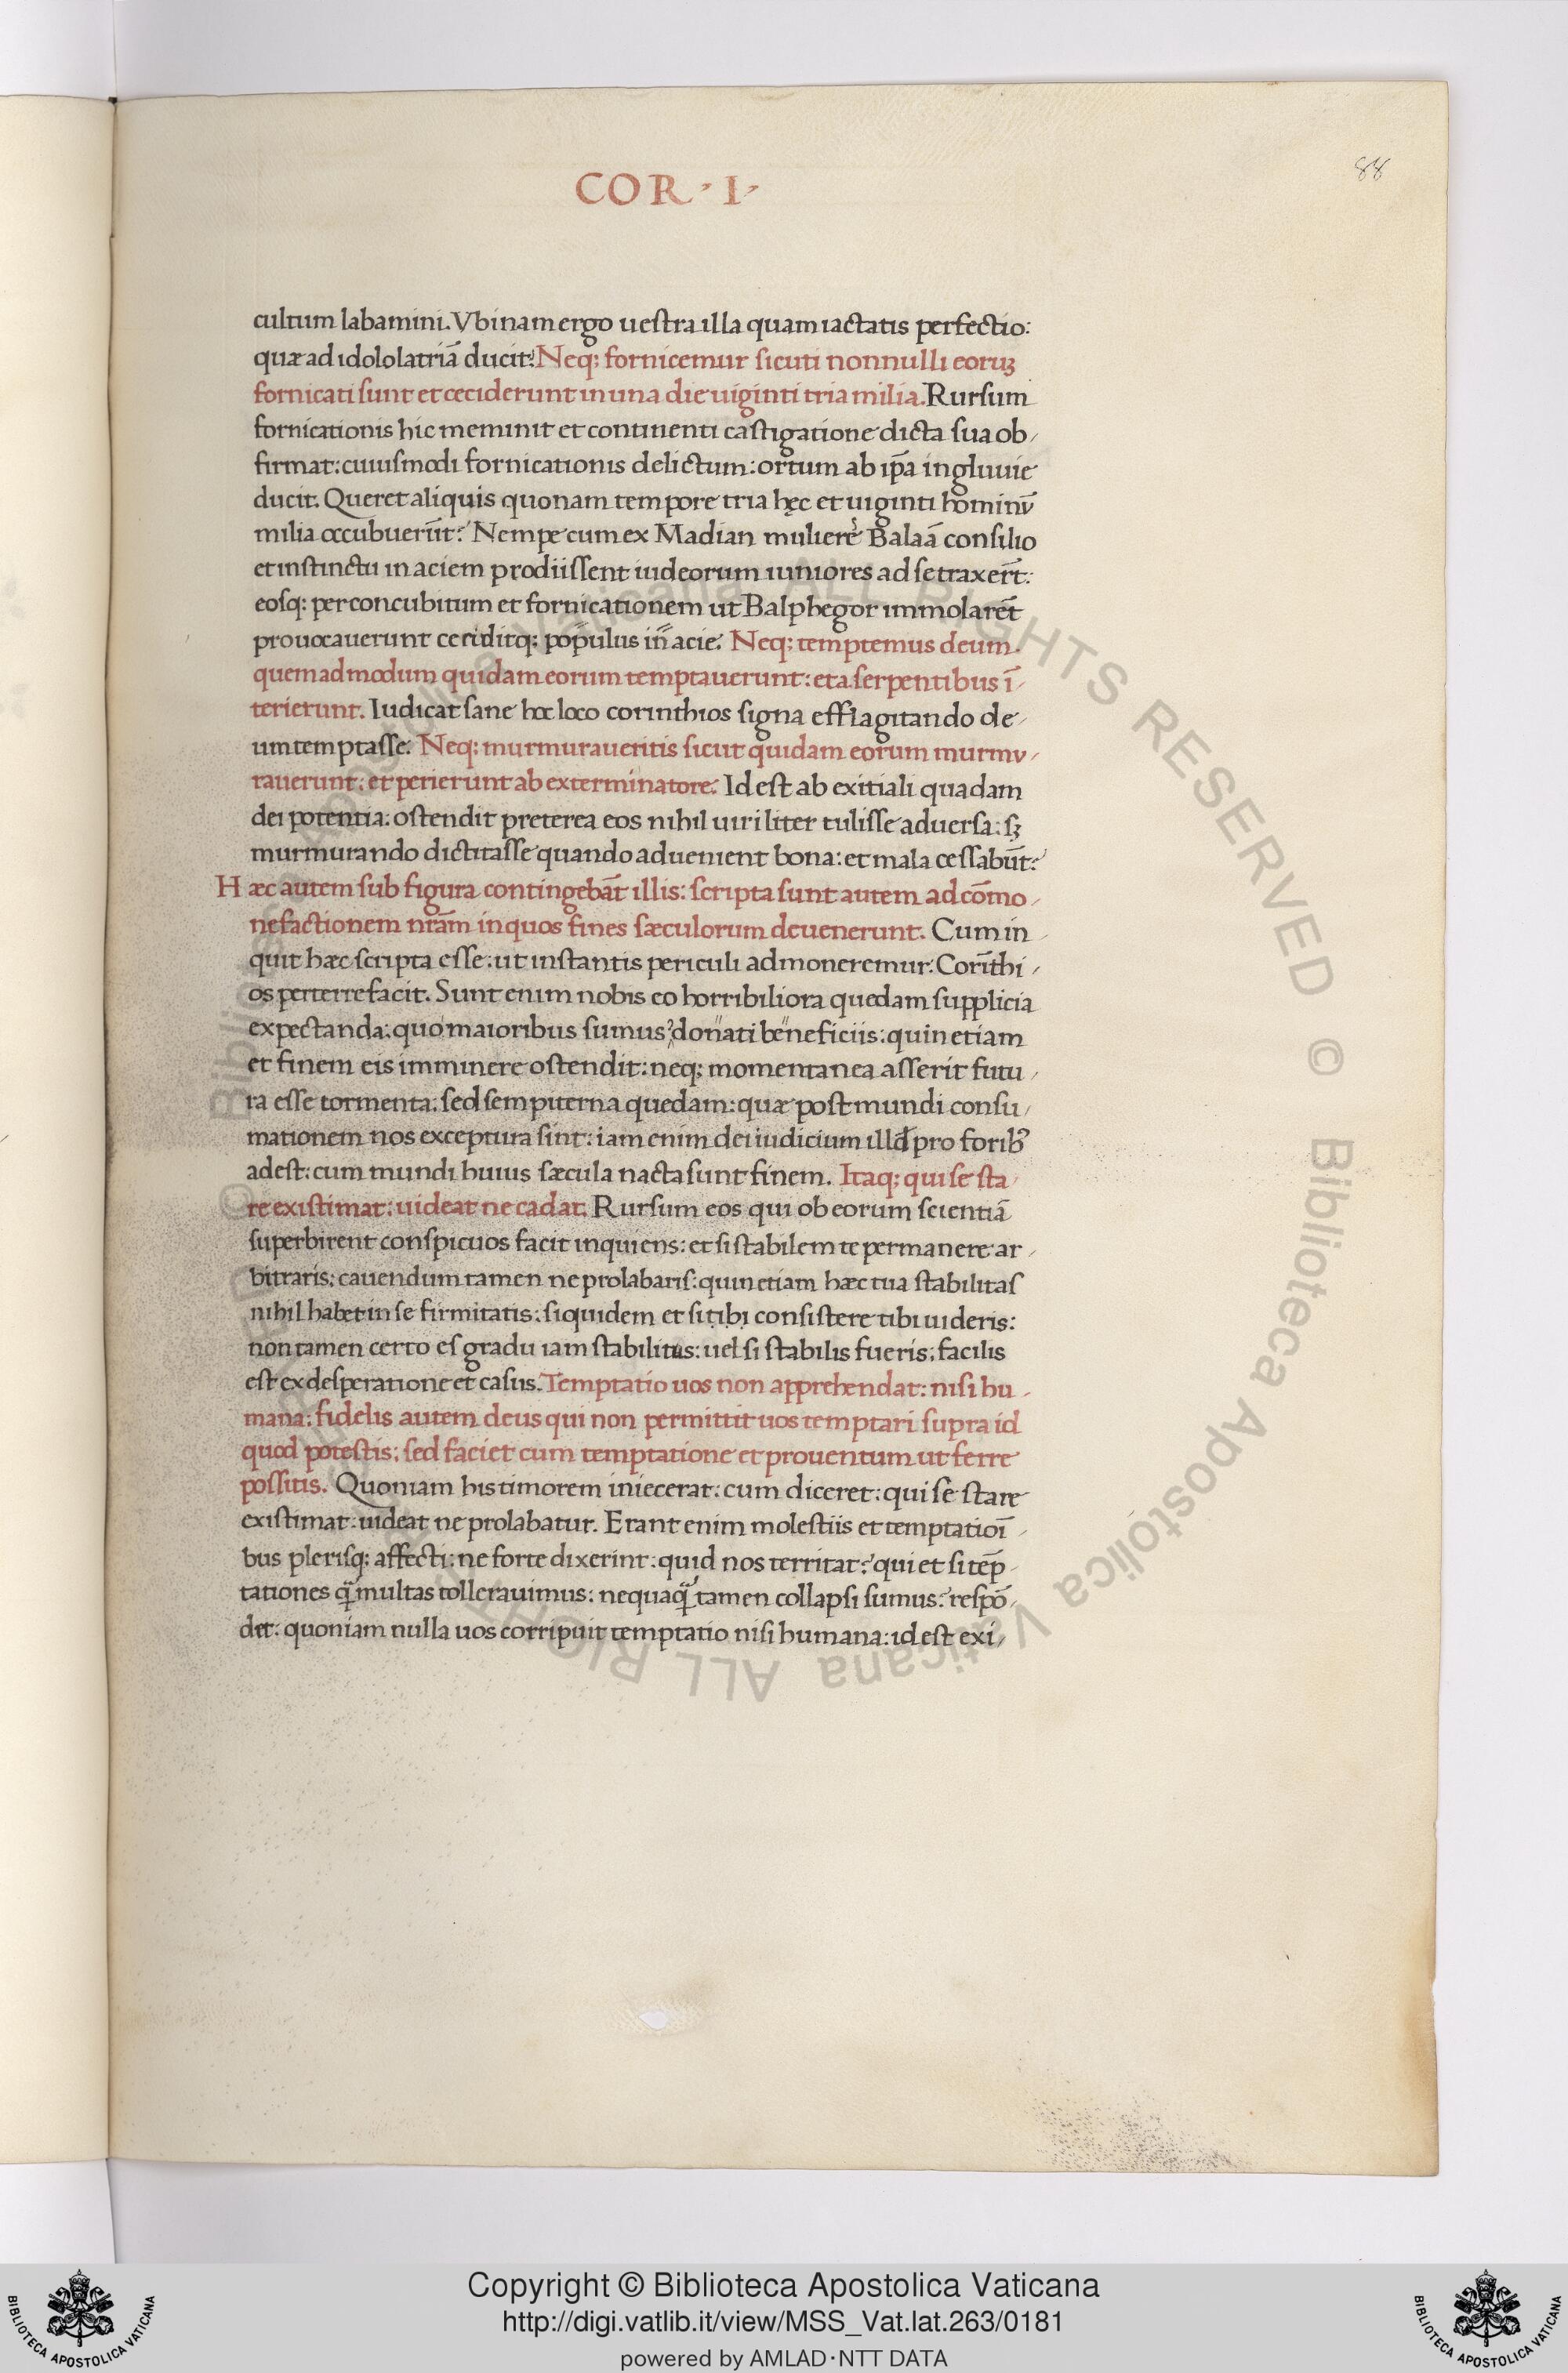 COR · I ·
88
cultum labamini. Vbinam ergo uestra illa quam iactatis perfectio:
quæ ad idololatriā ducit? Neq; fornicemur sicuti nonnulli eoruꝫ
fornicati sunt et ceciderunt in una die uiginti tria milia. Rursum
fornicationis hic meminit et continenti castigatione dicta sua ob-
firmat: cuiusmodi fornicationis delictum: ortum ab ip̄a ingluuie
ducit. Queret aliquis quonam tempore tria hęc et uiginti hominū
milia occubuerūt? Nempe cum ex Madian muliere Balaā consilio
et instinctu in aciem prodiissent iudeorum iuniores ad se traxerīt:
eosq: per concubitum et fornicationem ut Balphegor immolarēt
prouocauerunt ceciditq: populus in acie. Neq; temptemus deum
quemadmodum quidam eorum temptauerunt: et a serpentibus ī-
terierunt. Iudicat sane hoc loco corinthios signa efflagitando de-
um temptasse. Neq: murmuraueritis sicut quidam eorum murmu-
rauerunt: et perierunt ab exterminatore. Id est ab exitiali quadam
dei potentia: ostendit preterea eos nihil uiriliter tulisse aduersa: sꝫ
murmurando dictitasse quando aduenient bona: et mala cessabūt?
Hæc autem sub figura contingebāt illis: scripta sunt autem ad cōmo-
nefactionem nr̄am in quos fines sæculorum deuenerunt. Cum in-
quit hæc scripta esse: ut instantis periculi admoneremur: Corīthi-
os perterrefacit. Sunt enim nobis eo horribiliora quedam supplicia
expectanda: quo maioribus sumus donati beneficiis: quin etiam
et finem eis imminere ostendit: neq; momentanea asserit futu-
ra esse tormenta: sed sempiterna quedam: quæ post mundi consu-
mationem nos exceptura sint: iam enim dei iudicium illd pro forib᾽
adest: cum mundi huius sæcula nacta sunt finem. Itaq; qui se sta-
re existimat: uideat ne cadat. Rursum eos qui ob eorum scientiā
superbirent conspicuos facit inquiens: et si stabilem te permanere ar-
bitraris: cauendum tamen ne prolabaris: quin etiam hæc tua stabilitas
nihil habet in se firmitatis: siquidem et si tibi consistere tibi uideris:
non tamen certo es gradu iam stabilitus: uel si stabilis fueris: facilis
est ex desperatione et casus. Temptatio uos non apprehendat: nisi hu-
mana: fidelis autem deus qui non permittit uos temptari supra id
quod potestis: sed faciet cum temptatione et prouentum ut ferre
possitis. Quoniam his timorem iniecerat: cum diceret: qui se stare
existimat: uideat ne prolabatur. Erant enim molestiis et temptatioī-
bus plerisq: affecti: ne forte dixerint: quid nos territat? qui et si tēp-
tationes q̄ multas tollerauimus: nequaq̄ tamen collapsi sumus? respō-
det: quoniam nulla uos corripuit temptatio nisi humana: id est exi-
© Biblioteca Apostolica Vaticana ALL RIGHTS RESERVED © Biblioteca Apostolica Vaticana ALL RIGHTS RESERVED
Copyright © Biblioteca Apostolica Vaticana
http://digi.vatlib.it/view/MSS_Vat.lat.263/0181
powered by AMLAD·NTT DATA
BIBLIOTECA APOSTOLICA VATICANA
BIBLIOTECA APOSTOLICA VATICANA